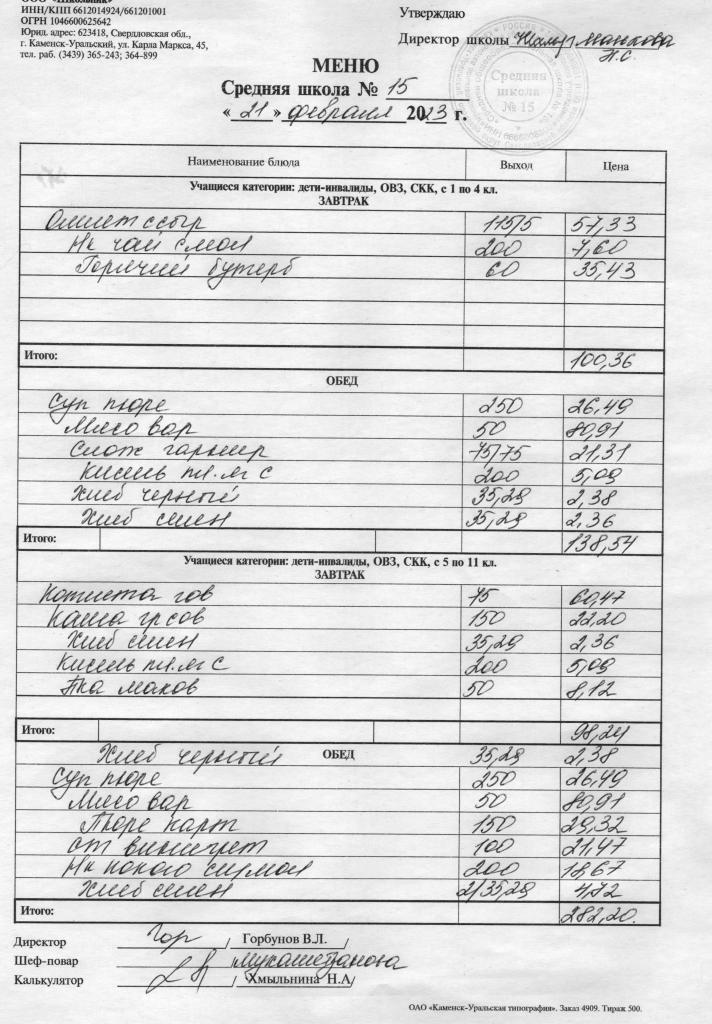 ООО «Школьник»
ИНН/КПП 6612014924/661201001
ОГРН 1046600625642
Юрид. адрес: 623418, Свердловская обл.,
г. Каменск-Уральский, ул. Карла Маркса, 45,
тел. раб. (3439) 365-243; 364-899
Утверждаю
Директор школы Манкова
Н.С.
Средняя
школа
№ 15
МЕНЮ
Средняя школа № 15
« 21 » февраля 2023 г.
Наименование блюда Выход Цена
Учащиеся категории: дети-инвалиды, ОВЗ, СКК, с 1 по 4 кл.
ЗАВТРАК
Омлет с сыр 115/5 57,33
Нк чай с мол 200 7,60
Горячий бутерб 60 35,43
Итого: 100,36
ОБЕД
Суп пюре 250 26,49
Мясо вар 50 80,91
Слож гарнир 75/75 21,31
Кисель пл.яг С 200 5,09
Хлеб черный 35,29 2,38
Хлеб пшен 35,29 2,36
Итого: 138,54
Учащиеся категории: дети-инвалиды, ОВЗ, СКК, с 5 по 11 кл.
ЗАВТРАК
Котлета гов 75 60,47
Каша грсов 150 22,20
Хлеб пшен 35,29 2,36
Кисель пл.яг С 200 5,09
Пка маков 50 8,12
Итого: 98,24
ОБЕД
Хлеб черный 35,29 2,38
Суп пюре 250 26,49
Мясо вар 50 80,91
Пюре карт 150 29,32
От винегрет 100 21,47
Нк какао сгимол 200 18,67
Хлеб пшен 2/35,29 4,72
Итого: 282,20
Директор Гор / Горбунов В.Л. /
Шеф-повар / Мукашетанова
Калькулятор / Хмыльнина Н.А/
ОАО «Каменск-Уральская типография». Заказ 4909. Тираж 500.